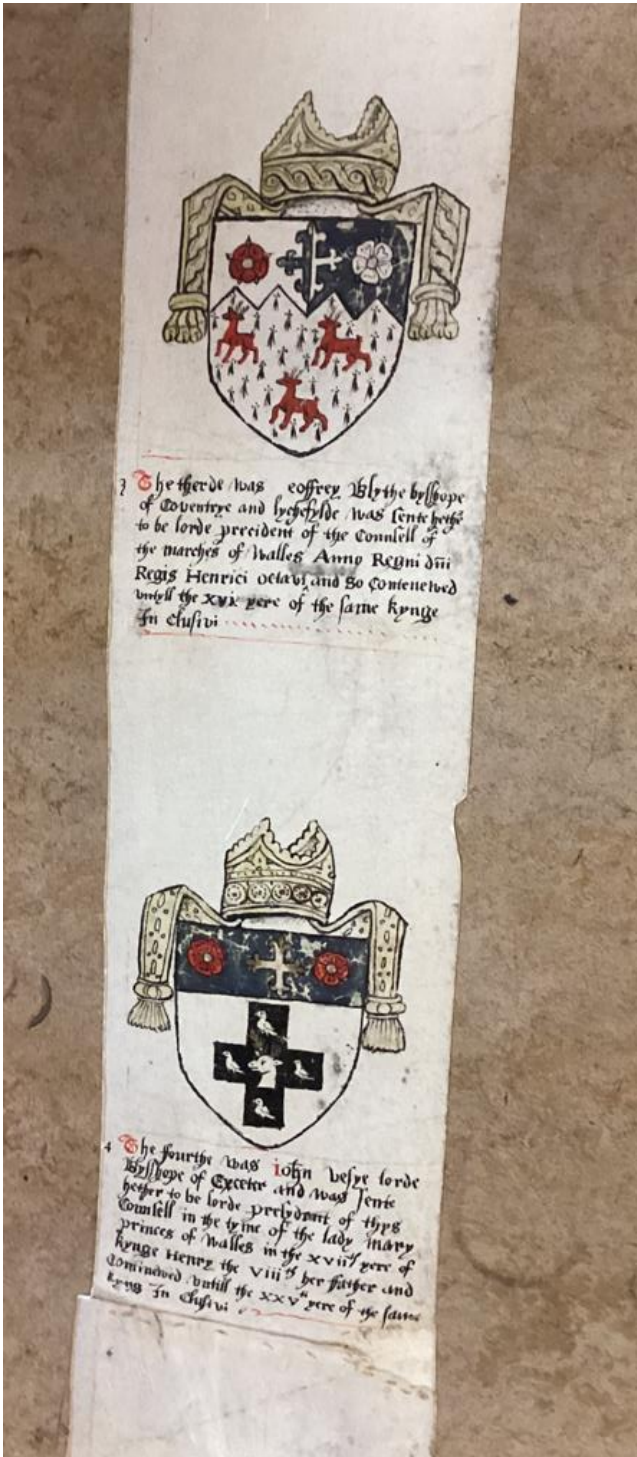 3 The therde was eoffrey Blythe bysshope
of Coventrye and lychefylde was sente hether
to be lorde precident of the Counsell of
the marches of Walles Anno Regni dñi
Regis Henrici octavi and so Contenewed
untyll the XVI yere of the same kynge
In Clusivi
4 The fourthe was iohn vesye lorde
Bysshope of Exceter and was sente
hether to be lorde presydent of thys
Counsell in the tyme of the lady mary
princes of Walles in the XVIIth yere of
kynge Henry the VIIIth her father and
Continewed untill the XXVth yere of the same
kyng In Clusivi